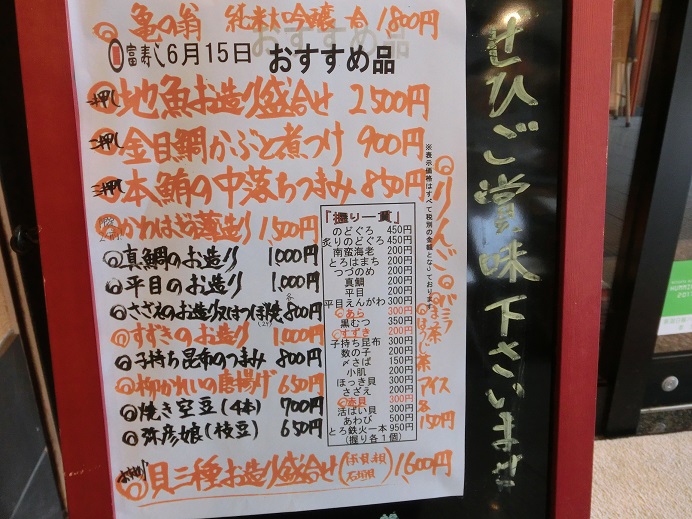 亀の翁 純米大吟醸 一合 1800円
富寿し 6月15日 おすすめ品
一押し 地魚お造り盛合せ 2500円
二押し 金目鯛かぶと煮つけ 900円
三押し 本鮪の中落ちつまみ 850円
かわはぎ薄造り 1,500円
真鯛のお造り 1,000円
平目のお造り 1,000円
さざえのお造り又はつぼ焼 各800円
すずきのお造り 1,000円
子持ち昆布のつまみ 800円
柳かれいの唐揚げ 650円
焼き空豆(4本) 700円
弥彦娘(枝豆) 650円
貝三種お造り盛合せ 1,600円
『握り一貫』
のどぐろ 450円
炙りのどぐろ 450円
南蛮海老 200円
とろはまち 200円
つづのめ 200円
真鯛 200円
平目 200円
平目えんがわ 300円
あら 300円
黒むつ 350円
すずき 200円
子持ち昆布 300円
数の子 200円
〆さば 150円
小肌 200円
ほっき貝 200円
さざえ 200円
赤貝 300円
活ばい貝 300円
あわび 500円
とろ鉄火一本 950円
(握り各1個)
※表示価格はすべて税別の金額となっております。
りんご
バニラ
ほうじ茶
アイス
各150円
ぜひご賞味下さいませ